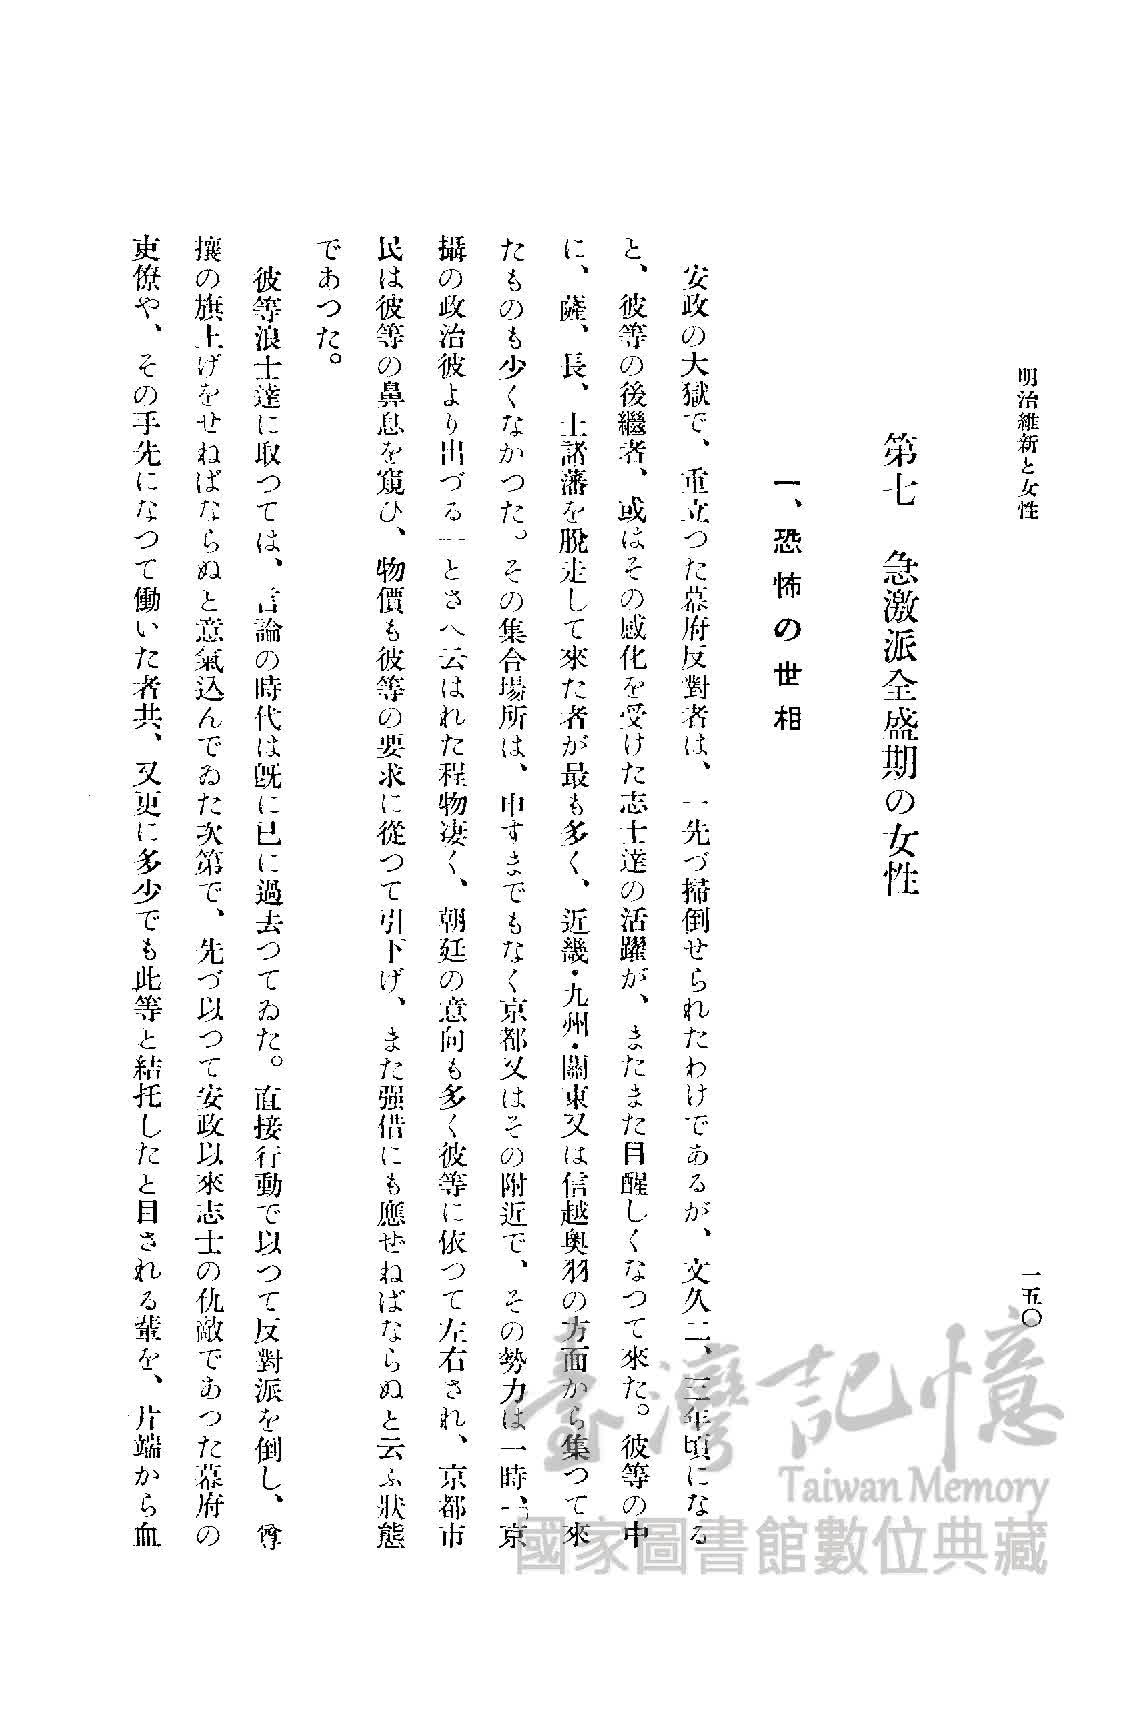 明治維新と女性
一五〇
第七　急激派全盛期の女性
一、恐怖の世相
安政の大獄で、重立つた幕府反對者は、一先づ掃倒せられたわけであるが、文久二、三年頃になる
と、彼等の後繼者、或はその感化を受けた志士達の活躍が、またまた目醒しくなつて來た。彼等の中
に、薩、長、土諸藩を脫走して來た者が最も多く、近畿・九州・關東又は信越奥羽の方面から集つて來
たものも少くなかつた。その集合場所は、申すまでもなく京都又はその附近で、その勢力は一時、「京
攝の政治彼より出づる」とさへ云はれた程物凄く、朝廷の意向も多く彼等に依つて左右され、京都市
民は彼等の鼻息を窺ひ、物價も彼等の要求に從つて引下げ、また强借にも應ぜねばならぬと云ふ狀態
であつた。
彼等浪士達に取つては、言論の時代は旣に已に過去つてゐた。直接行動で以つて反對派を倒し、尊
攘の旗上げをせねばならぬと意氣込んでゐた次第で、先づ以つて安政以來志士の仇敵であつた幕府の
吏僚や、その手先になつて働いた者共、又更に多少でも此等と結托したと目される輩を、片端から血
臺灣記憶
Taiwan Memory
國家圖書館數位典藏